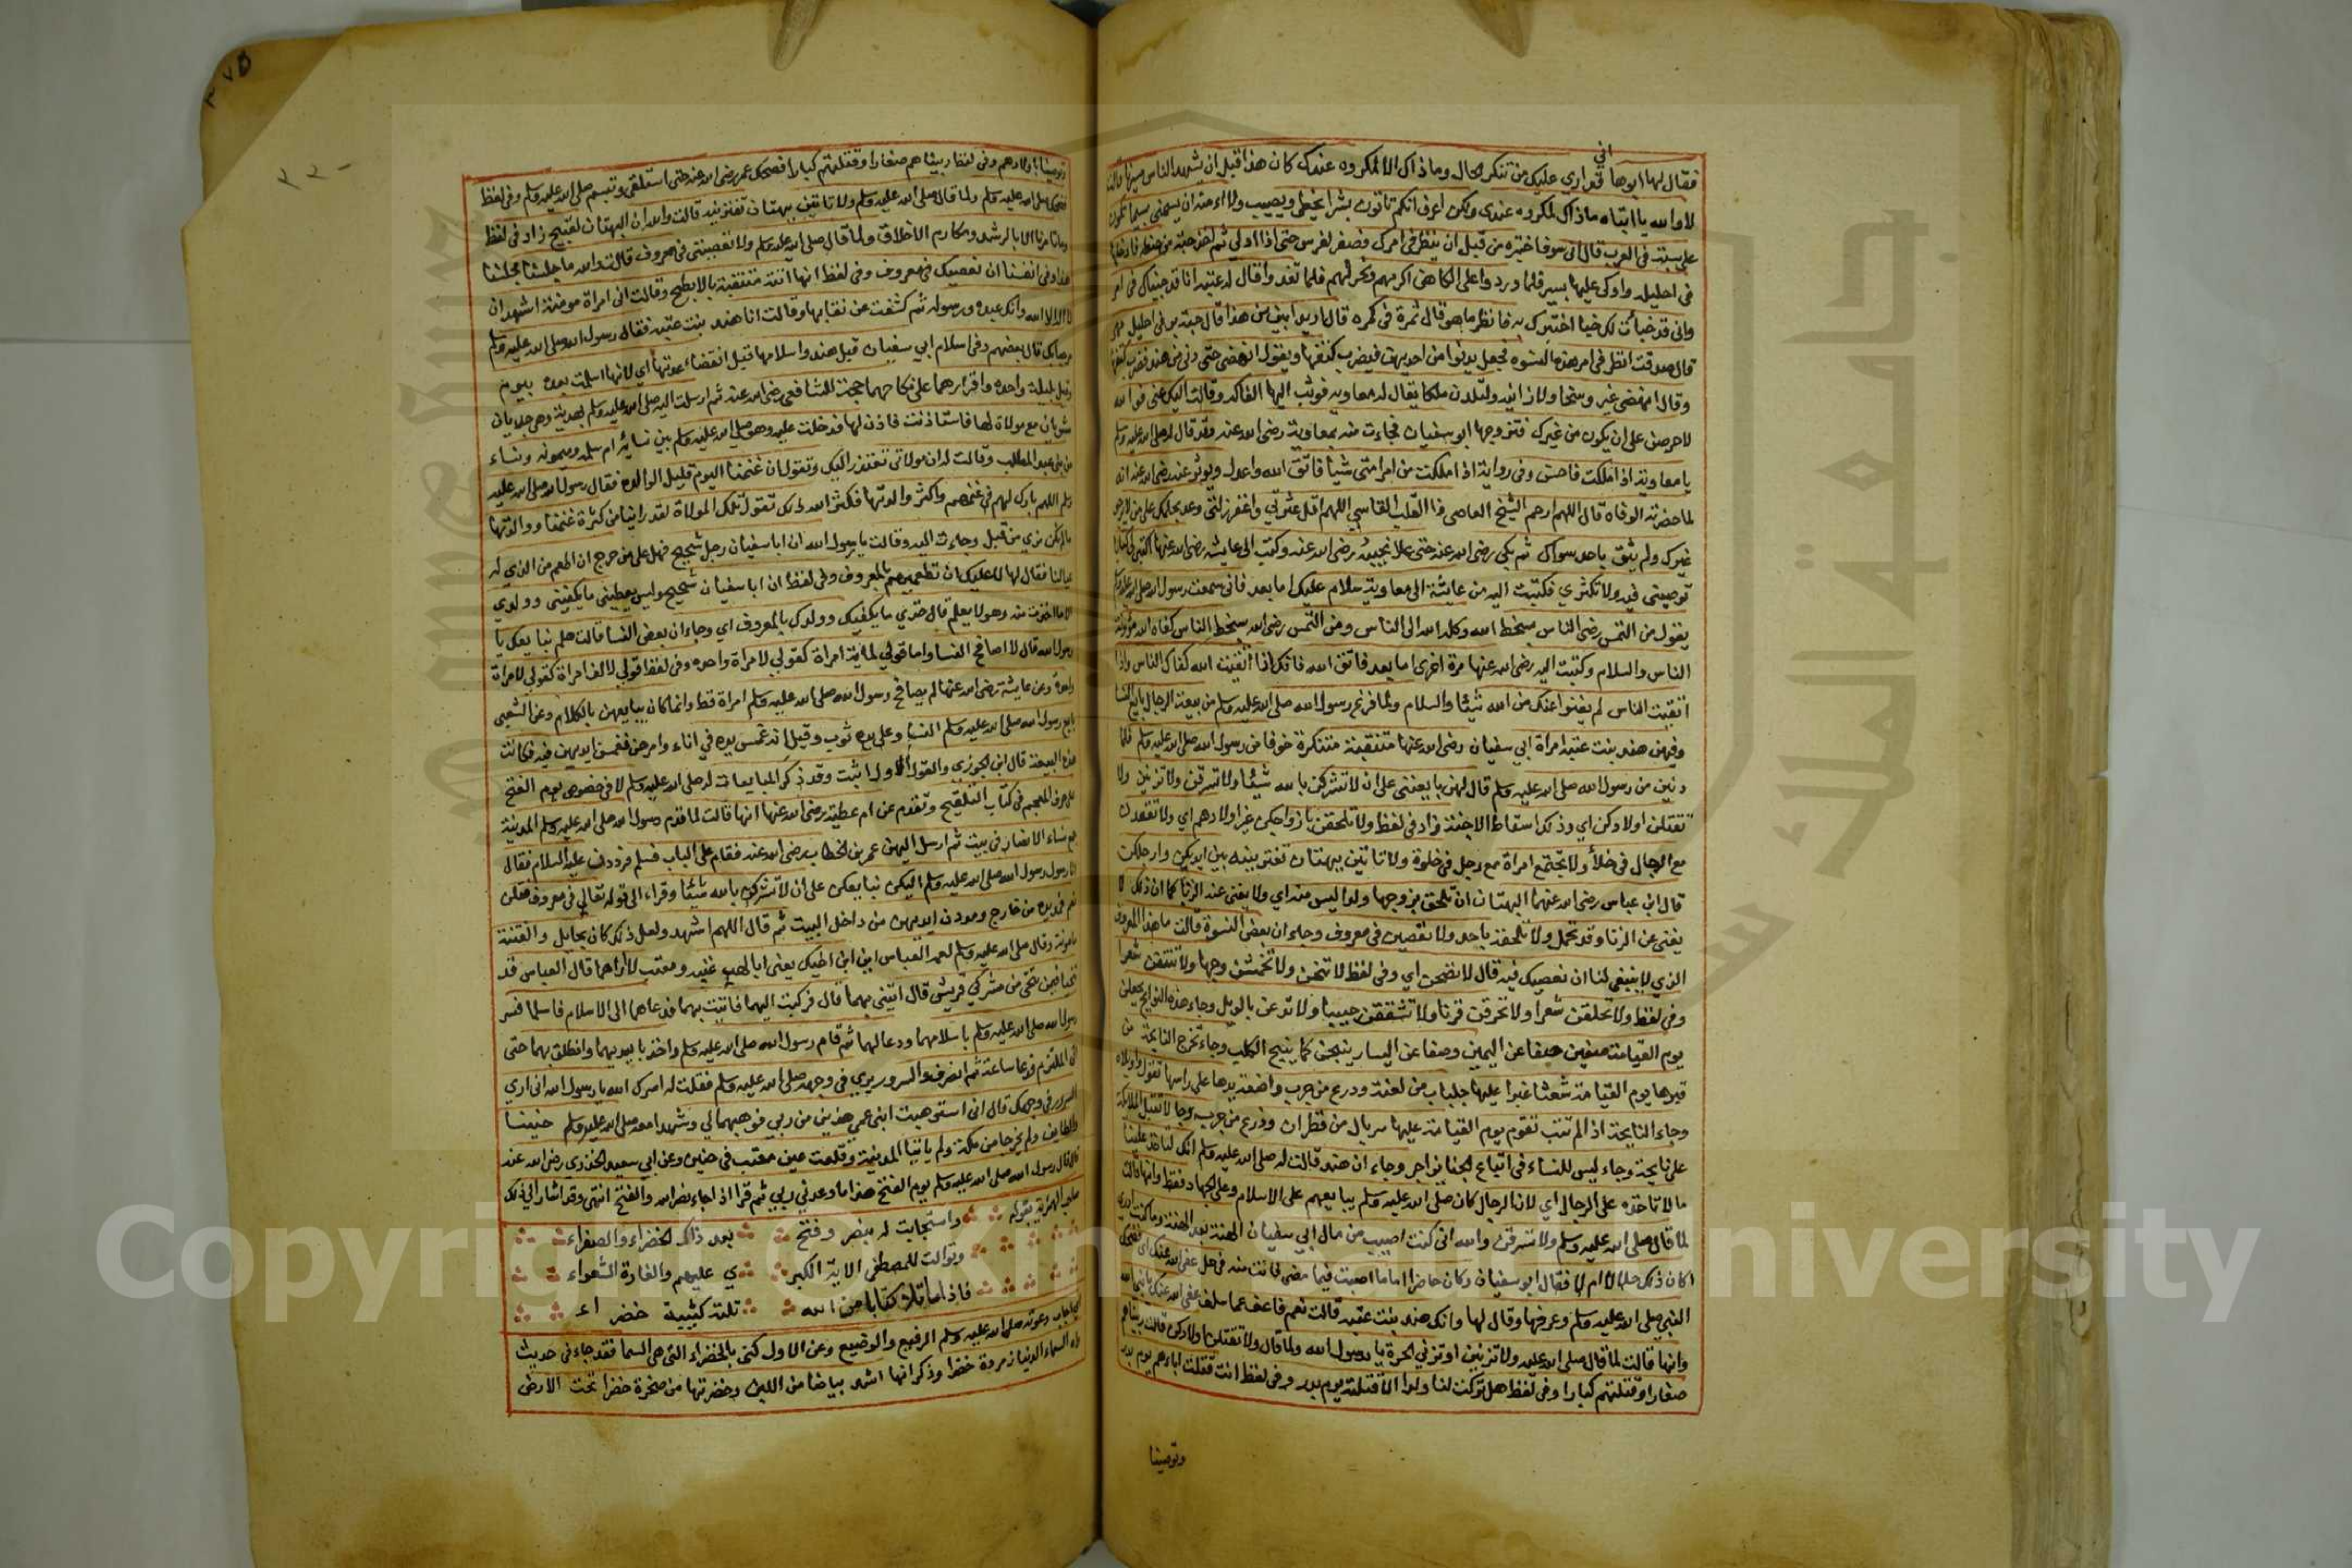 اني
فقال لها ابوها قد اري عليك من تنكر الحال وما ذاك الا لمكروه عندك كان هذا قبل ان يشهد الناس مسيرنا قالت
لا والله يا ابتاه ما ذاك لمكروه عندي ولكن اعرف انكم تاتون بشرا يخطي ويصيب ولا امنه ان يسمني بسيما تكون
علي سبة في العرب قال اني سوف اختبره من قبل ان ينظر في امرك فصفر لفرس حتى اذا ادلي ثم اخذ حبة من حنطة فادخلها
في احليله واوكى عليها بسير فلما وردوا على الكاهن اكرمهم ونحر لهم فلما تغدوا قال له عتبة انا قد جيناك في امر
واني قد خبأت لك خبيا اختبرك به فانظر ما هو قال ثمرة في كمرة قال اريد ابين من هذا قال حبة بر في احليل مهر
قال صدقت انظر في امر هذه النسوه فجعل يدنوا من احديهن فيضرب كتفها ويقول انهضي حتى دنى من هند فضرب كتفها
وقال انهضي غير وسخا ولا زانيه ولتلدن ملكا يقال له معاويه فوثب اليها الفاكه وقالت اليك عني فوالله
لاحرصن على ان يكون من غيرك فتزوجها ابو سفيان فجاءت منه بمعاوية رضى الله عنه وقد قال له صلى الله عليه وسلم
يا معاوية اذا ملكت فاحسن وفى رواية اذا ملكت من امر امتي شيأ فاتق الله واعدل ويوثر عنه رضى الله عنه انه
لما حضرته الوفاه قال اللهم ارحم الشيخ العاصي ذا القلب القاسي اللهم اقل عثرتي واغفر زلتي وعد بحلمك على من لا يرجو
غيرك ولم يثق باحد سواك ثم بكي رضى الله عنه حتى علا نحيبه رضى الله عنه وكتب الى عايشة رضى الله عنها اكتبي لي كتابا
توصيني فيه ولا تكثري فكتبت اليه من عائشة الى معاوية سلام عليك اما بعد فاني سمعت رسول الله صلى الله عليه وسلم
يقول من التمس رضى الناس بسخط الله وكله الله الى الناس ومن التمس رضى الله بسخط الناس كفاه الله مؤونة
الناس والسلام وكتبت اليه رضى الله عنها مرة اخرى اما بعد فاتق الله فانك اذا اتقيت الله كفاك الناس واذا
اتقيت الناس لم يغنوا عنك من الله شيئا والسلام ولما فرغ رسول الله صلى الله عليه وسلم من بيعة الرجال بايع النسا
وفيهن هند بنت عتبة امراة ابي سفيان رضى الله عنها متنقبة متنكرة خوفا من رسول الله صلى الله عليه وسلم فلما
دنين من رسول الله صلى الله عليه وسلم قال لهن بايعنني على ان لا تشركن بالله شيئا ولا تسرقن ولا تزنين ولا
تقتلن اولادكن اي وذلك اسقاط الاجنة زاد في لفظ ولا تلحقن بازواجكن غير اولادهم اي ولا تقعدن
مع الرجال في خلأ ولا تجتمع امراة مع رجل في خلوة ولا تاتين ببهتان تفترينه بين ايديكن وارجلكن
قال ابن عباس رضى الله عنهما البهتان ان تلحق بزوجها ولدا ليس منه اي ولا يغنى عنه الزنا كما ان ذلك لا
يغنى عن الزنا وقد تحمل ولا تلحقه باحد ولا تعصين في معروف وجاء ان بعض النسوة قالت ما هذا المعروف
الذي لا ينبغي لنا ان نعصيك فيه قال لا تصحن اي وفي لفظ لا تنحن ولا تخمشن وجها ولا تنتفن شعرا
وفي لفظ ولا تحلقن شعرا ولا تحرقن قرنا ولا تشققن جيبا ولا تدعن بالويل وجاء هذه النوايح يجعلن
يوم القيامة صفين صفا عن اليمين وصفا عن اليسار ينبحن كما ينبح الكلب وجاء تخرج النايحة من
قبرها يوم القيامة شعثا غبرا عليها جلباب من لعنة ودرع من جرب واضعة يدها على راسها تقول واويلاه
وجاء النايحة اذا لم تتب تقوم يوم القيامة عليها سربال من قطران ودرع من جرب وجا لا تقبل الملائكة
على نايحة وجاء ليس للنساء في اتباع الجنايز اجر وجاء ان هند قالت له صلى الله عليه وسلم انك لتاخذ علينا
ما لا تاخذه على الرجال اي لان الرجال كان صلى الله عليه وسلم يبايعهم على الاسلام وعلى الجهاد فقط وانها قالت
لما قال صلى الله عليه وسلم ولا تسرقن والله اني كنت اصيب من مال ابي سفيان الهنة بعد الهنة وما كنت ادري
اكان ذلك حلالا ام لا فقال ابو سفيان وكان حاضرا اما ما اصبت فيما مضى فانت منه في حل عفى الله عنك اي فضحك
النبي صلى الله عليه وسلم وعرفها وقال لها وانك هند بنت عتبة قالت نعم فاعف عما سلف عفى الله عنك يا نبي الله
وانها قالت لما قال صلى الله عليه ولا تزنين او تزني الحرة يا رسول الله ولما قال ولا تقتلن اولادكن قالت ربيناهم
صغارا وقتلتهم كبارا وفى لفظ هل تركت لنا ولدا الا قتلته يوم بدر وفى لفظ انت قتلت اباءهم يوم بدر
وتوصينا
٢٢٠
٢٧٥
وتوصينا باولادهم وفى لفظ ربيناهم صغارا وقتلتهم كبارا فضحك عمر رضى الله عنه حتى استلقى وتبسم صلى الله عليه وسلم وفى لفظ
ضحك صلى الله عليه وسلم ولما قال صلى الله عليه وسلم ولا تاتين ببهتان تفترينه قالت والله ان البهتان لقبيح زاد في لفظ
وما تامرنا الا بالرشد ومكارم الاخلاق ولما قال صلى الله عليه وسلم ولا تعصينني في معروف قالت والله ما جلسنا مجلسنا
هذا وفى انفسنا ان نعصيك في معروف وفى لفظ انها اتته متنقبة بالابطح وقالت انى امراة مومنة اشهد ان
لا اله الا الله وانك عبده ورسوله ثم كشفت عن نقابها وقالت انا هند بنت عتبه فقال رسول الله صلى الله عليه وسلم
مرحبا بك قال بعضهم وفى اسلام ابي سفيان قبل هند واسلامها قبل انقضاء عدتها اي لانها اسلمت بعده بيوم
وقيل بليلة واحده واقرارهما على نكاحهما حجة للشافعى رضى الله عنه ثم ارسلت اليه صلى الله عليه وسلم بهدية وهى جديان
مشويان مع مولاة لها فاستاذنت فاذن لها فدخلت عليه وهو صلى الله عليه وسلم بين نسائه ام سلمه وميمونه ونساء
من بنى عبد المطلب وقالت له ان مولاتي تعتذر اليك وتقول ان غنمنا اليوم قليل الوالده فقال رسول الله صلى الله عليه
وسلم اللهم بارك لهم في غنمهم واكثر والدتها فكثر الله ذلك تقول تلك المولاة لقد راينا من كثرة غنمنا ووالدتها
ما لم نكن نري من قبل وجاءت اليه وقالت يا رسول الله ان ابا سفيان رجل شحيح فهل علي من حرج ان اطعم من الذي له
عيالنا فقال لها لا عليك ان تطعميهم بالمعروف وفى لفظ ان ابا سفيان شحيح وليس يعطيني ما يكفيني وولدي
الا ما اخذت منه وهو لا يعلم قال خذي ما يكفيك وولدك بالمعروف اي وجاء ان بعض النسا قالت هلم نبايعك يا
رسول الله قال لا اصافح النسا وانما قولي لمائة امراة كقولي لامراة واحده وفى لفظ قولي لالف امراة كقولي لامراة
واحدة وعن عايشة رضى الله عنها لم يصافح رسول الله صلى الله عليه وسلم امراة قط وانما كان يبايعهن بالكلام وعن الشعبي
بايع رسول الله صلى الله عليه وسلم النسأ وعلى يده ثوب وقيل انه غمس يده في اناء وامرهن فغمسن ايديهن فيه فكانت
هذه البيعة قال ابن الجوزي والقول الاول اثبت وقد ذكر المبايعات له صلى الله عليه وسلم لا في خصوص يوم الفتح
على حروف المعجم في كتاب التلقيح وتقدم عن ام عطية رضى الله عنها انها قالت لما قدم رسول الله صلى الله عليه وسلم المدينة
جمع نساء الانصار في بيت ثم ارسل اليهن عمر بن الخطاب رضى الله عنه فقام على الباب فسلم فرددن عليه السلام فقال
انا رسول رسول الله صلى الله عليه وسلم اليكن نبايعكن على ان لا تشركن بالله شيئا وقراء الى قوله تعالى في معروف فقلن
نعم فمد يده من خارج ومددن ايديهن من داخل البيت ثم قال اللهم اشهد ولعل ذلك كان بحايل والفتنة
مامونة وقال صلى الله عليه وسلم لعمه العباس اين ابن اخيك يعنى ابا لهب عتبه ومعتب لا اراهما قال العباس قد
تنحيا فيمن تنحى من مشركي قريش قال ائتني بهما قال فركبت اليهما فاتيت بهما فدعاهما الى الاسلام فاسلما فسر
رسول الله صلى الله عليه وسلم باسلامهما ودعا لهما ثم قام رسول الله صلى الله عليه وسلم واخذ بايديهما وانطلق بهما حتى
اتى الملتزم فدعا ساعة ثم انصرف والسرور يري في وجهه صلى الله عليه وسلم فقلت له اسرك الله يا رسول الله انى اري
السرور في وجهك قال انى استوهبت ابنى عمي هذين من ربي فوهبهما لي وشهدا معه صلى الله عليه وسلم حنينا
والطايف ولم يخرجا من مكة ولم ياتيا المدينة وقلعت عين معتب في حنين وعن ابي سعيد الخدري رضى الله عنه
قال قال رسول الله صلى الله عليه وسلم يوم الفتح هذا ما وعدني ربي ثم قرا اذا جاء نصر الله والفتح انتهى وقد اشار الى ذلك
صاحب الهمزية بقوله واستجابت له بنصر وفتح بعد ذاك الخضراء والصفراء
وتوالت للمصطفى الاية الكبر ي عليهم والغارة الشعواء
فاذا ما تلا كتابا من الله تلته كتيبة خضراء
اي اجاب دعوته صلى الله عليه وسلم الرفيع والوضيع وعن الاول كنى بالخضراء التى هى السما فقد جاء في حديث
ان السماء الدنيا زمردة خضرا وذكر انها اشد بياضا من اللبن وخضرتها من صخرة خضرا تحت الارض